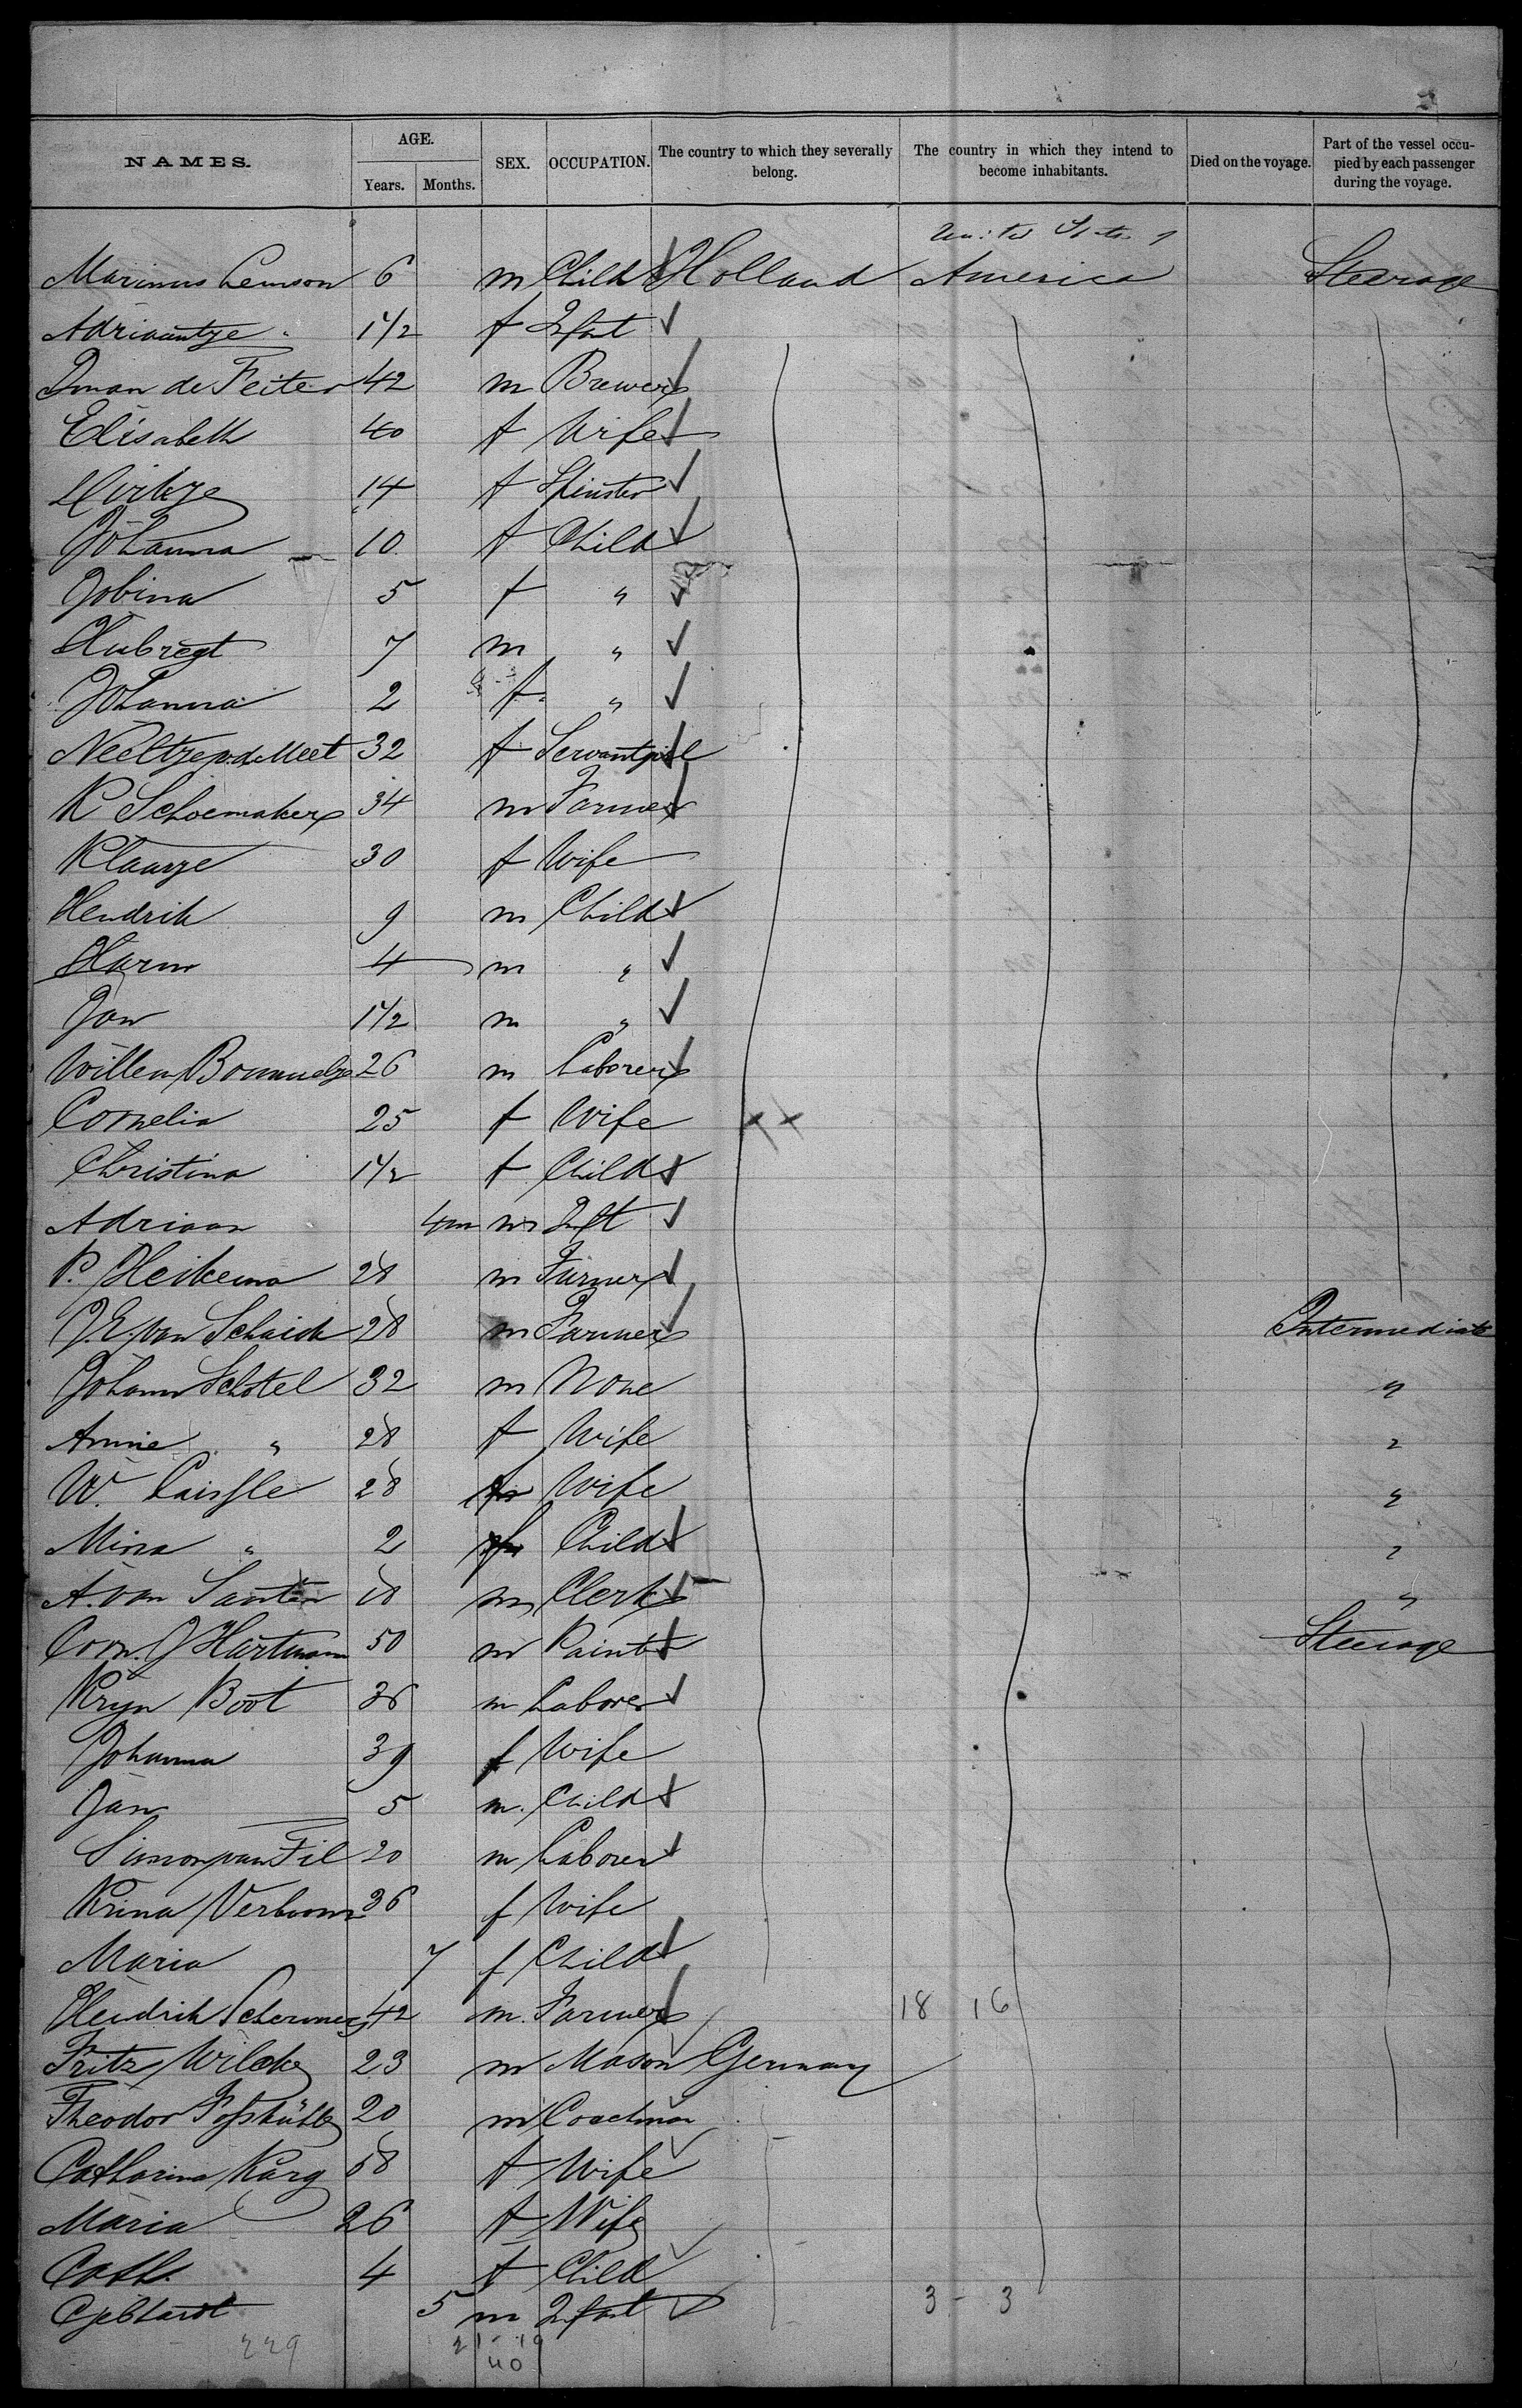 NAMES. AGE. Years. Months. SEX. OCCUPATION. The country to which they severally belong. The country in which they intend to become inhabitants. Died on the voyage. Part of the vessel occupied by each passenger during the voyage.
United States of
Marinus Lemson 6 m Child Holland America Steerage
Adriaantze " 1 1/2 f Infant
de Feiter 42 m Brewer
Elisabeth 40 f Wife
Dirkze 14 f Spinster
Johanna 10 f Child
Jobina 5 f "
Hubregt 7 m "
Johanna 2 f "
Neeltze v. d. Meet 32 f Servantgirl
K Schoemaker 34 m Farmer
Klaarze 30 f Wife
Hendrik 9 m Child
Harm 4 m "
Jan 1 1/2 m "
Willem Bommelze 26 m Laborer
Cornelia 25 f Wife
Christina 1 1/2 f Child
Adriaan 4m m Inft
P. Heikema 28 m Farmer
J. E. van Schaick 28 m Farmer Intermediate
Johann Schotel 32 m None "
Annie " 28 f Wife "
W. 28 f Wife "
Mina " 2 f Child "
A. van Santen 18 m Clerk "
Corn. J Hartmann 50 m Painter Steerage
Kryn Boot 36 m Laborer
Johanna 39 f Wife
Jan 5 m. Child
Simon van Fil 20 m Laborer
Krina Verboom 36 f Wife
Maria 7 f Child
Hendrik Schermer 42 m. Farmer 18 16
Fritz Wilcke 23 m Mason Germany
Theodor 20 m Coachman
Catharina Karg 58 f Wife
Maria 26 f Wife
Cath. 4 f Child
Gebhardt 5 m Infant 3 - 3
229 21 - 19
40